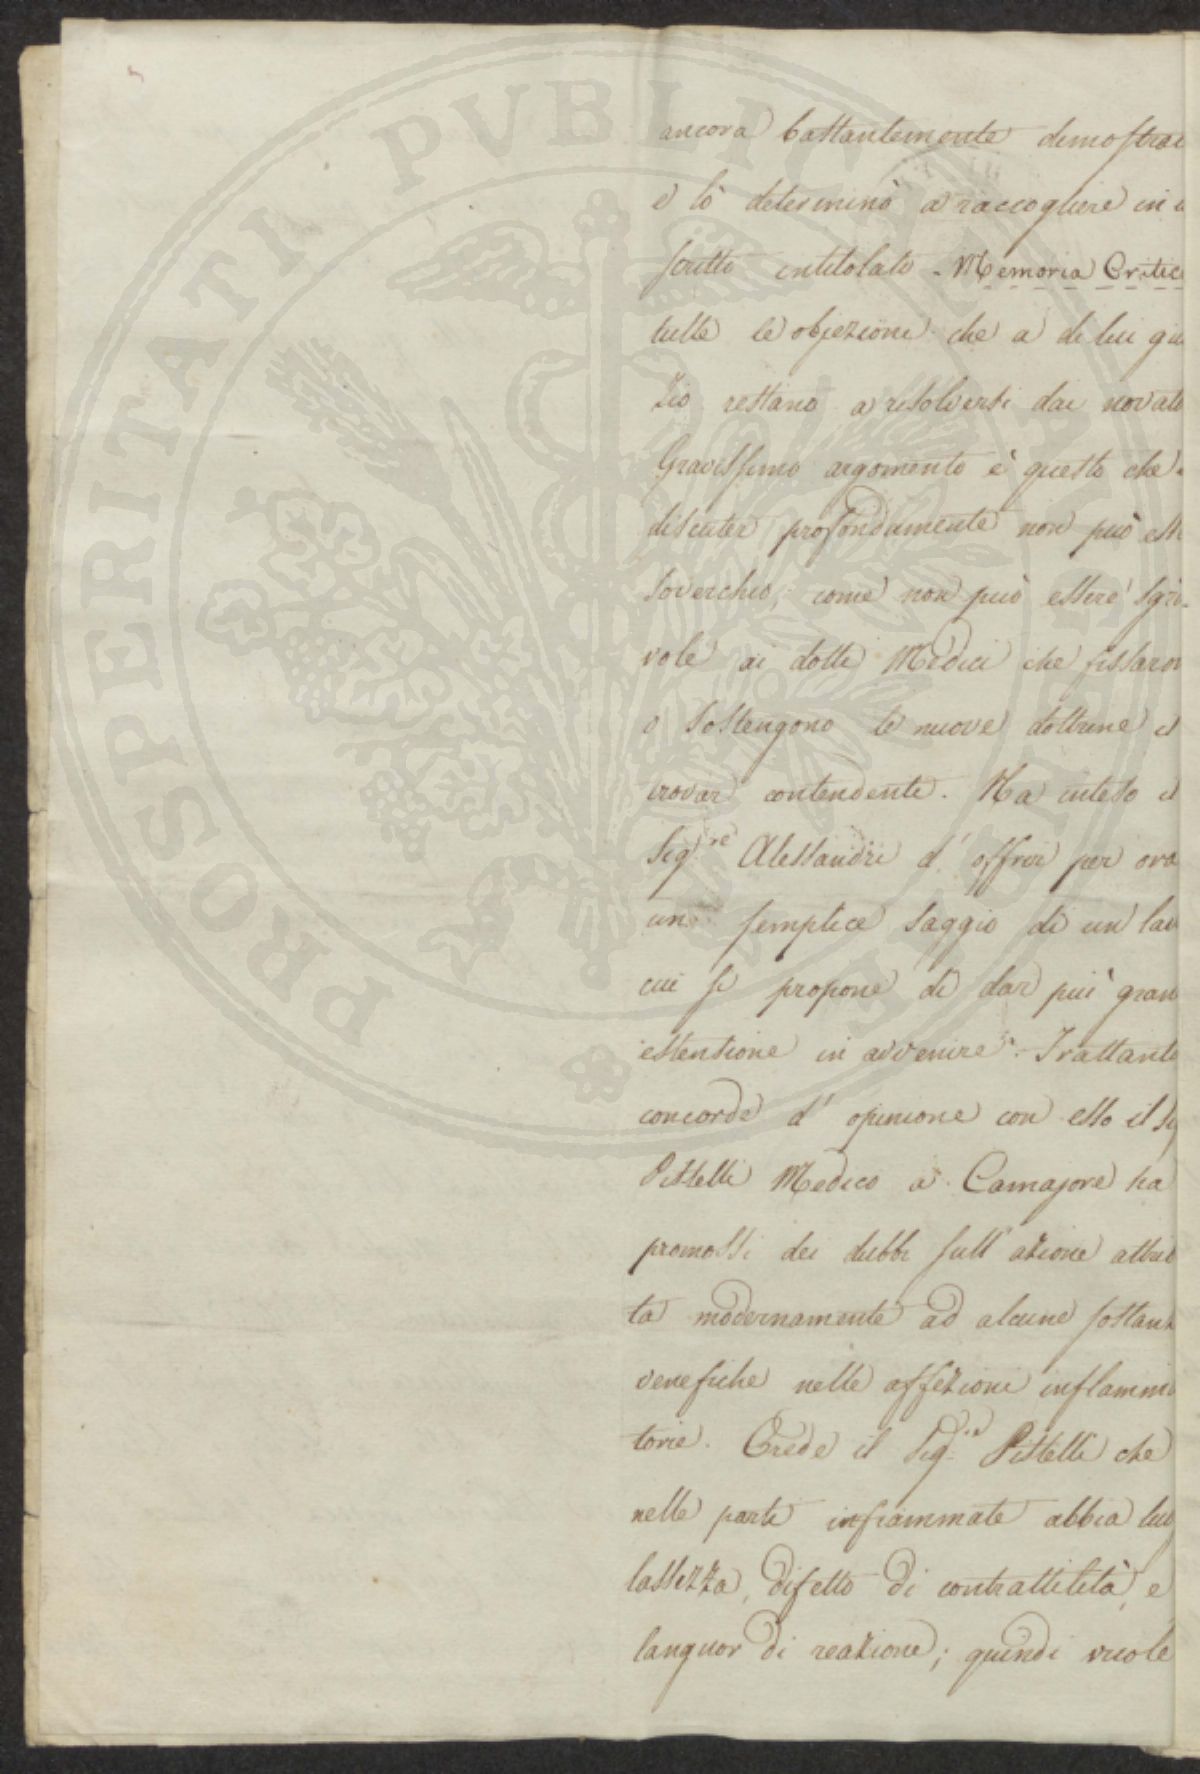 ancora bastantemente demostrat
e lò determinò a raccogliere in u
scritto intitolato - Memoria Critic
tutte le objezioni che a di lui giu
zio restano a risolversi dai novato
Gravissimo argomento è questo che
discuter profondamente non può ess
soverchio, come non può essere sgra-
vole ai dotti Medici che fissaron
o sostengono le nuove dottrine il
trovar contendenti. Ha inteso il
Sig.re Alessandri d'offrir per ora
un semplice saggio di un lav
cui si propone di dar più gran
estensione in avvenire. Trattanto
concorde d'opinione con esso il Sig
Pistelli Medico a Camajore ha
promossi dei dubbi sull'azione attrib
ta modernamente ad alcune sostanz
venefiche nelle affezioni inflamma
torie. Crede il Sig.re Pistelli che
nelle parti infiammate abbia luo
lassezza, difetto di contrattilità, e
languor di reazione; quindi vuole
PROSPERITATI PVBLICAE